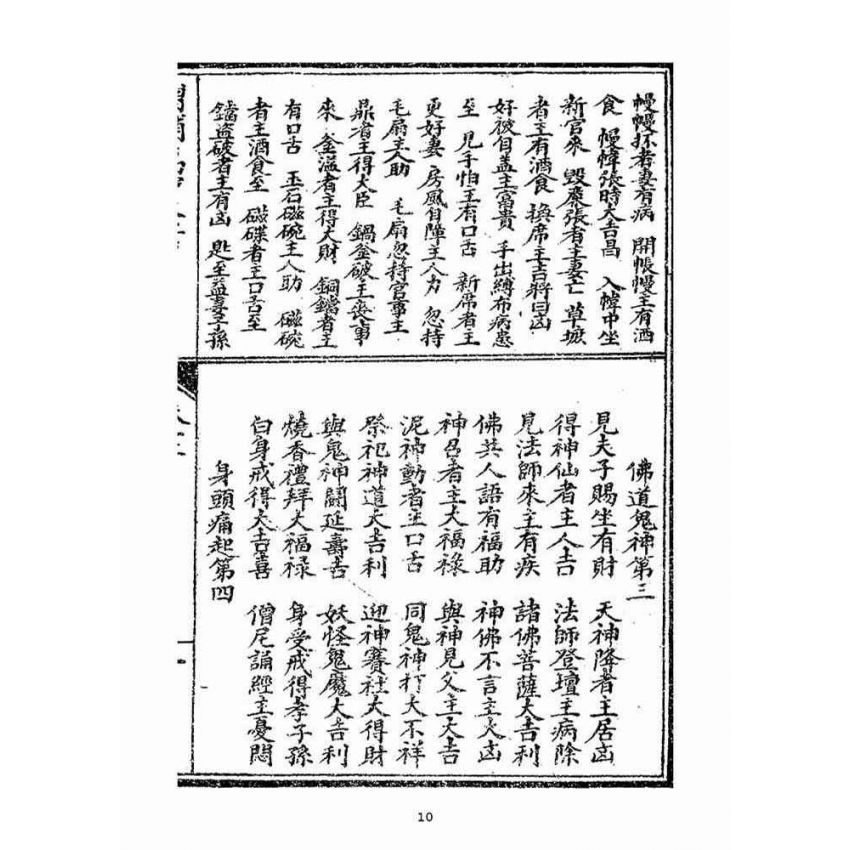 幔幪坏者妻有病　開帳幔主有酒
食　幔幃張時大吉昌　入幃中坐
新官來　毀㡡張者主妻亡　草墩
者主有酒食　換席主吉將曰凶
好被自蓋主富貴　手出縛布病患
至　見手怕主有口舌　新席者主
更好妻　房風自障主人力　忽持
毛扇主人助　毛扇忽持官事主
鼎者主得大臣　鍋釜破主喪事
來　釜溢者主得大財　銅鐺者主
有口舌　玉石磁碗主人助　磁碗
者主酒食至　磁碟者主口舌至
鐺盜破者主有凶　匙至益妻子孫
佛道鬼神第三
見夫子賜坐有財　天神降者主居凶
得神仙者主人吉　法師登壇主病除
見法師來主有疾　諸佛菩薩大吉利
佛共人語有福助　神佛不言主大凶
神召者主大福祿　與神見父主大吉
泥神動者主口舌　同鬼神打大不祥
祭祀神道大吉利　迎神賽社大得財
與鬼神鬪延壽吉　妖怪鬼魔大吉利
燒香禮拜大福祿　身受戒得孝子孫
白身戒得大吉喜　僧尼誦經主憂悶
身頭痛起第四
10